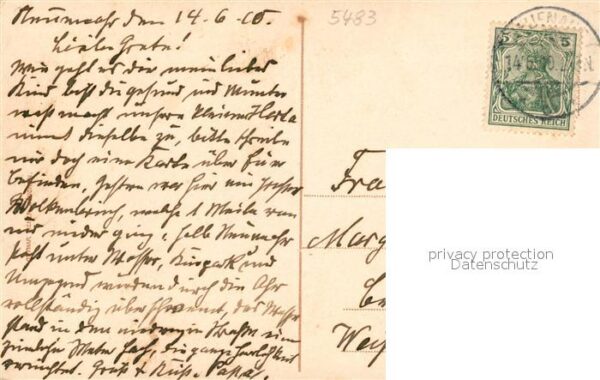 Neuenahr den 14.6.10.
5483
Liebe Grete!
Wie geht es dir mein liebes
Kind bist du gesund und munter
was macht unsere kleine Herta
nimmt dieselbe zu, bitte schreibe
mir doch eine Karte über Euer
befinden, Gestern war hier ein großer
Wolkenbruch, welche 1 Meile von
uns nieder ging; halb Neuenahr
steht unter Wasser, Kurpark und
Umgegend wurden durch die Ahr
vollständig überschwemmt, das Wasser
stand in den niedrigen Straßen ein
Meter hoch, die ganze Herlichkeit
vernichtet. Gruß & Kuß. Papa.
5 5
DEUTSCHES REICH
Fra
Marg
Weiß
privacy protection
Datenschutz